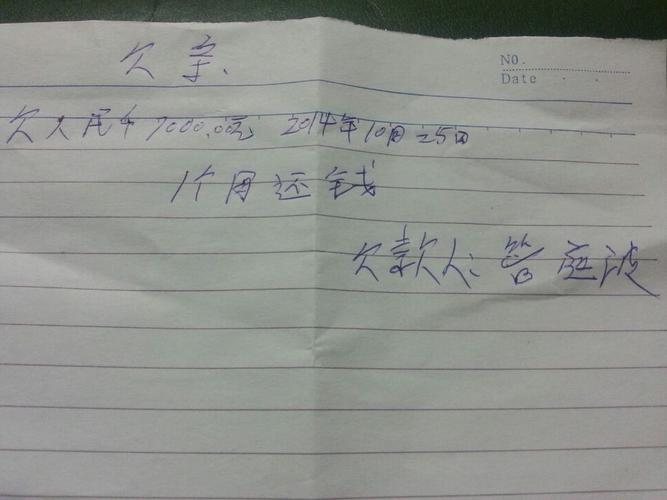 NO.
Date
欠字.
欠人民币7000.00元 2014年10月25日
1个月还钱
欠款人:管庭波